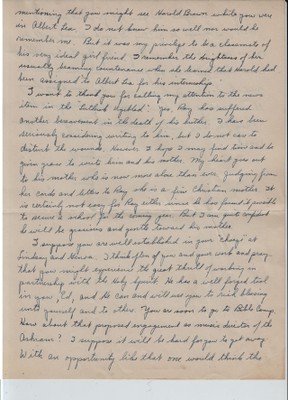 mentioning that you might see Harold Brown while you were
in Albert Lea. I do not know him so well nor would he
remember me. But it was my privilege to be a classmate of
his very ideal girl friend. I remember the brightness of her
usually beaming countenance when she learned that Harold had
been assigned to Albert Lea for his internship.
I want to thank you for calling my attention to the news
item in the "Lutheran Herald". Yes Ray has suffered
another bereavement in the death of his brother. I have been
seriously considering writing to him, but I do not care to
disturb the wounds. However I hope I may find time and be
given grace to write him and his mother. My heart goes out
to his mother who is now more alone than ever. Judging from
her cards and letters to Ray she is a fine Christian mother. It
is certainly not easy for Ray either since he has found it possible
to secure a school for the coming year. But I am quite confident
he will be gracious and gentle toward his mother.
I suppose you are well established in your "charge" at
Lindsay and Minoa. I think often of you and your work and pray
that you might experience the great thrill of working in
partnership with the Holy Spirit. He has a well forged tool
in you, Ed, and He can and will use you to much blessing
unto yourself and to others. You are soon to go to Bible Camp.
How about that proposed engagement as music director of the
Arkham? I suppose it will be hard for you to get away.
With an opportunity like that one would think the